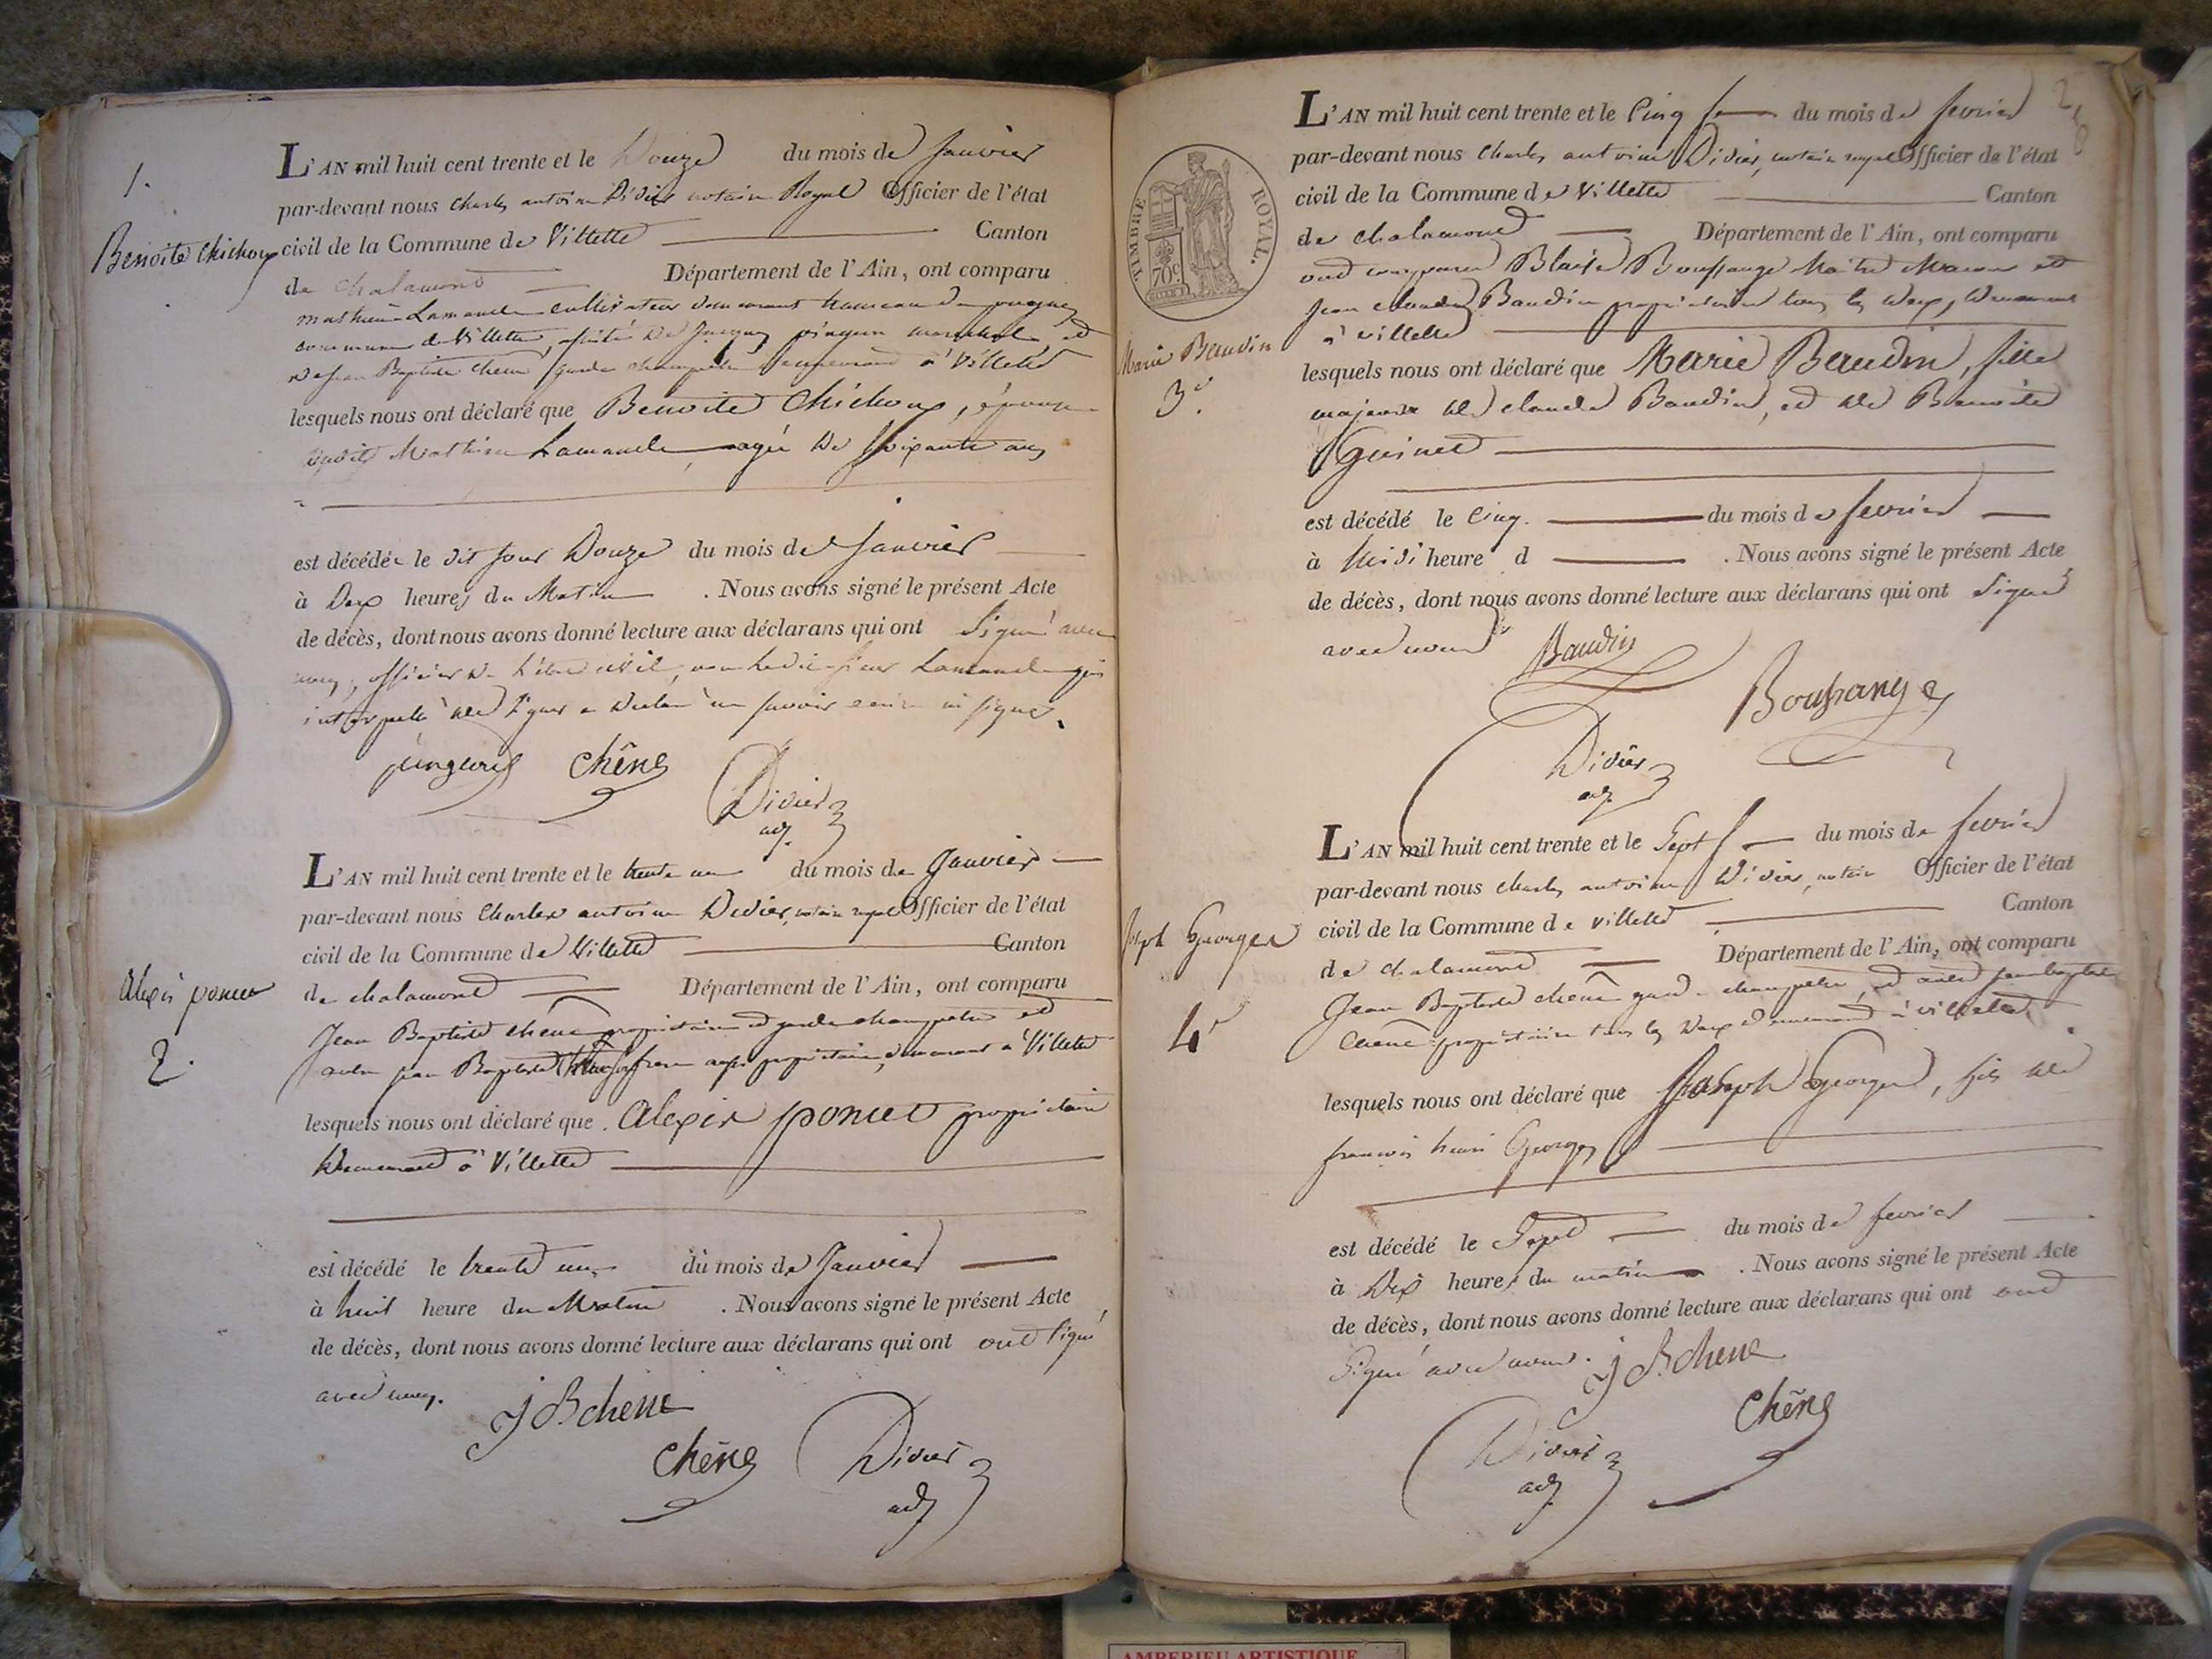 1.
Benoite Chichoux
L'AN mil huit cent trente et le Douze du mois de Janvier
par-devant nous Charles antoine Didier notaire Royal Officier de l'état
civil de la Commune de Villette Canton
de Chalamont Département de l'Ain, ont comparu
mathieu Lamanche cultivateur demeurant hameau de
commune de Villette, assisté de Jacques pinguin marechal, et
de Jean Baptiste Chene garde champetre demeurant à Villette
lesquels nous ont déclaré que Benoite Chichoux, épouse
dudit Mathieu Lamanche, agée de soixante ans
est décédée le dit jour Douze du mois de Janvier
à Dix heures du Matin . Nous avons signé le présent Acte
de décès, dont nous avons donné lecture aux déclarans qui ont Signé avec
nous, officier de l'état civil, non ledit sieur Lamanche qui
interpellé de signer a declaré ne savoir ecrire ni signer.
chêne
Didier
adj.
L'AN mil huit cent trente et le trente un du mois de Janvier
par-devant nous Charles antoine Didier, notaire royal Officier de l'état
civil de la Commune de Villette Canton
de chalamont Département de l'Ain, ont comparu
alexis poncet
2.
Jean Baptiste chêne propriétaire et garde champetre et
autre jean Baptiste propriétaire, demeurant à Villette
lesquels nous ont déclaré que alexis poncet propriétaire
demeurant à Villette
est décédé le trente un du mois de Janvier
à huit heure du Matin . Nous avons signé le présent Acte
de décès, dont nous avons donné lecture aux déclarans qui ont ont signé
avec nous.
J B chene
chêne
Didier
adj
L'AN mil huit cent trente et le Cinq du mois de fevrier
par-devant nous Charles antoine Didier, notaire royal Officier de l'état
civil de la Commune de Villette Canton
de chalamont Département de l'Ain, ont comparu
TIMBRE ROYAL.
70c
ont comparu Blaise Boussange Maitre Macon et
Jean claude Baudin propriétaire tous les deux, demeurant
à villette
Marie Baudin
3e.
lesquels nous ont déclaré que Marie Baudin, fille
majeure de claude Baudin, et de Benoite
Guinet
est décédé le Cinq. du mois de fevrier
à Midi heure d . Nous avons signé le présent Acte
de décès, dont nous avons donné lecture aux déclarans qui ont Signé
avec nous
Baudin
Boussange
Didier
adj.
L'AN mil huit cent trente et le Sept du mois de fevrier
par-devant nous charles antoine Didier, notaire Officier de l'état
civil de la Commune de villette Canton
de chalamont Département de l'Ain, ont comparu
joseph Georges
4e
Jean Baptiste chêne garde champetre, et autre jean baptiste
Chêne propriétaire tous les deux demeurant à villette
lesquels nous ont déclaré que Joseph Georges, fils de
francois henri Georges
est décédé le Sept du mois de fevrier
à Dix heures du matin . Nous avons signé le présent Acte
de décès, dont nous avons donné lecture aux déclarans qui ont ont
Signé avec nous.
J B chene
Chêne
Didier
adj.
AMBERIEU ARTISTIQUE